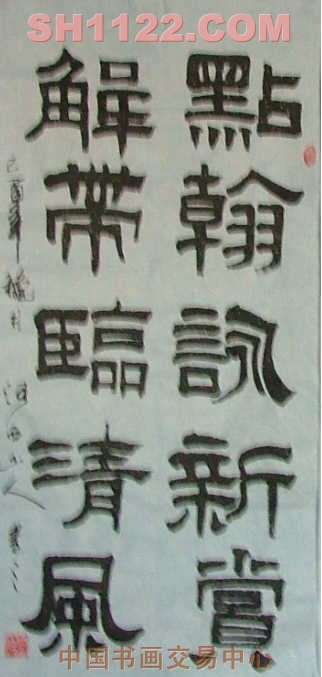 SH1122.COM
點翰詠新賞
解帶臨清風
己酉年
中国书画交易中心